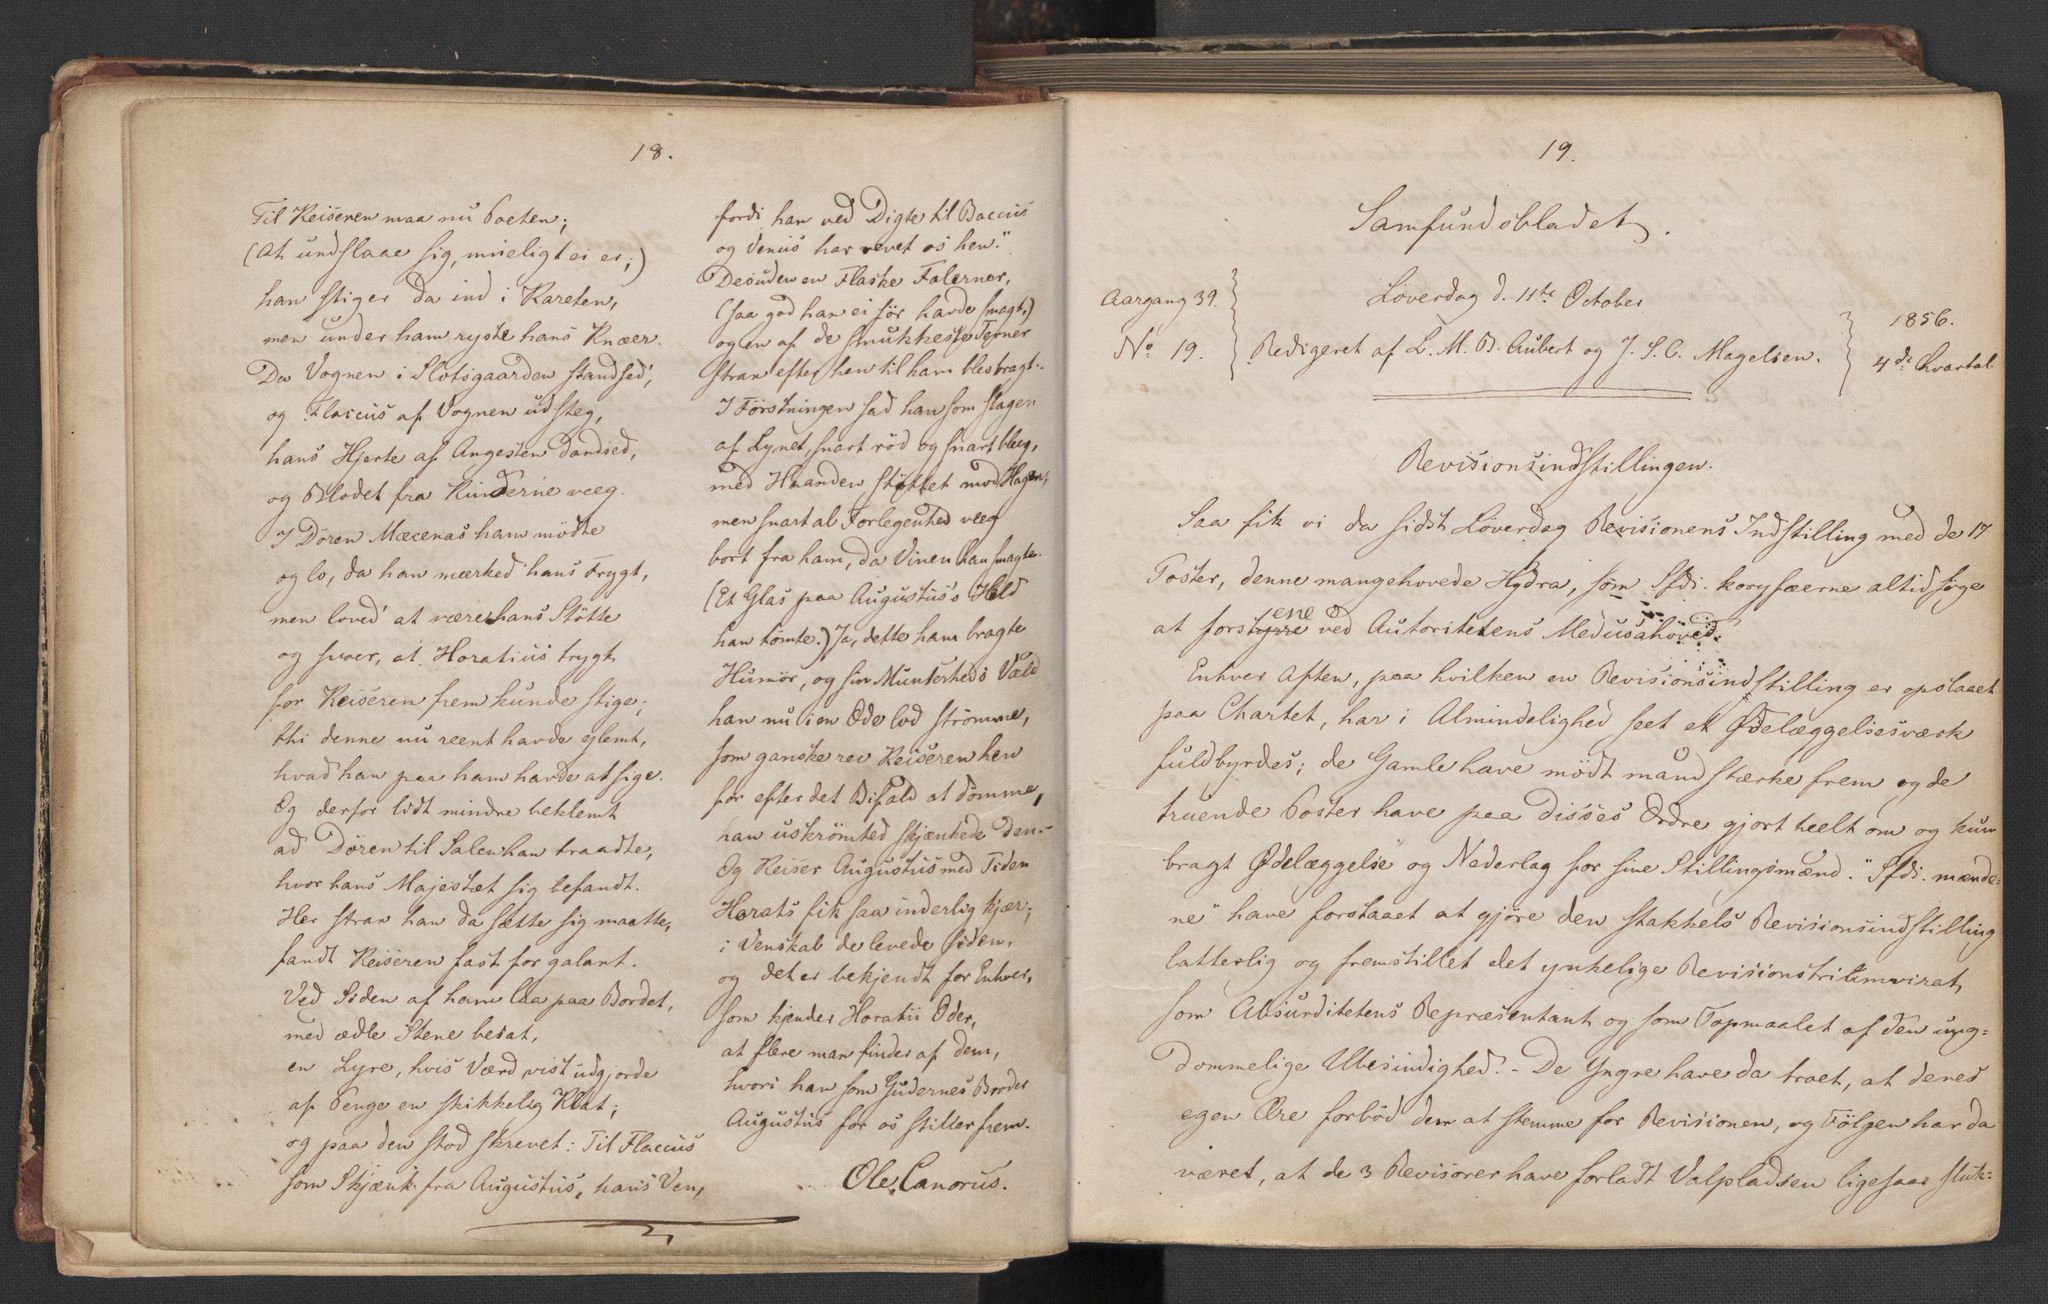 18.
Til Keiseren maa nu Poeten;
(At undslaae sig, mueligt ei er;)
han stiger da ind i Kareten,
men under ham ryste hans Knæer.
Da Vognen i Slotsgaarden standsed',
og Flaccus af Vognen udsteg,
hans Hjerte af Angesten dandsed,
og Blodet fra Kinderne veeg.
I Dören Mæcenas ham mödte
og lo, da han mærked' hans Frygt,
men loved' at være hans Stötte
og svoer, at Horatius trygt
for Keiseren frem kunde stige;
thi denne nu reent havde glemt,
hvad han paa ham havde at sige.
Og derfor lidt mindre beklemt
ad Dören til Salen han traadte,
hvor hans Majestæt sig befandt.
Her strax han da sætte sig maatte,
fandt Keiseren fast for galant.
Ved Siden af ham laa paa Bordet,
med ædle Stene besat,
en Lyre, hvis Værd vist udgjorde
af Penge en skikkelig Klat;
og paa den stod skrevet: Til Flaccus
som Skjænk fra Augustus, hans Ven,
fordi han ved Digte til Baccus
og Venus har revet os hen."
Desuden en Flaske Falerner,
(saa god han ei för havde smagt,)
og en af de smukkeste Terner
strax efter hen til ham blev bragt.
I Förstningen sad han som slagen
af Lynet, snart röd og snart bleg,
med Haanden stöttet mod Hagen;
men snart al Forlegenhed veeg
bort fra ham, da Vinen han smagte.
(Et Glas paa Augustus's Held
han tömte.) Ja, dette ham bragte
Humör, og sin Munterheds Væld
han nu i en Ode lod strömme,
som ganske rev Keiseren hen
for efter det Bifald at dömme,
han uskrömted skjænkede den.-
Og Keiser Augustus med Tiden
Horats fik saa inderlig kjær;
i Venskab de levede siden,
og det er bekjendt for Enhver,
som kjender Horatii Oder,
at flere man finder af dem,
hvori han som Gudernes Broder
Augustus for os stiller frem.
Ole Canorus.
19.
Samfundsbladet.
Aargang 39.
No 19.
Löverdag d. 11te October
Redigeret af L. M. B. Aubert og J. S. C. Magelsen.
1856.
4de Kvartal
Revisionsindstillingen.
Saa fik vi da sidst Löverdag Revisionens Indstilling med de 17
Poster, denne mangehovede Hydra, som Sfdi. koryfæerne altid söge
at forstyrre ene ved Autoritetens Medusahoved.
Enhver Aften, paa hvilken en Revisionsindstilling er opslaaet
paa Chartet, har i Almindelighed seet et Ødelæggelsesværk
fuldbyrdes; de Gamle have mödt mandstærke frem og de
truende Poster have paa Disses Ordre gjort heelt om og kun
bragt Ødelæggelse og Nederlag for sine Stillingsmænd. "Sfdi. mænde-
ne" have forstaaet at gjöre den stakkels Revisionsindstilling
latterlig og fremstillet det ynkelige Revisionstriumvirat,
som Absurditetens Repræsentant og som Topmaalet af den ung=
dommelige Ubesindighed. - De Yngre have da troet, at deres
egen Ære forbød dem at stemme for Revisionen, og Fölgen har da
været, at de 3 Revisorer have forladt Valpladsen ligesaa sluk=